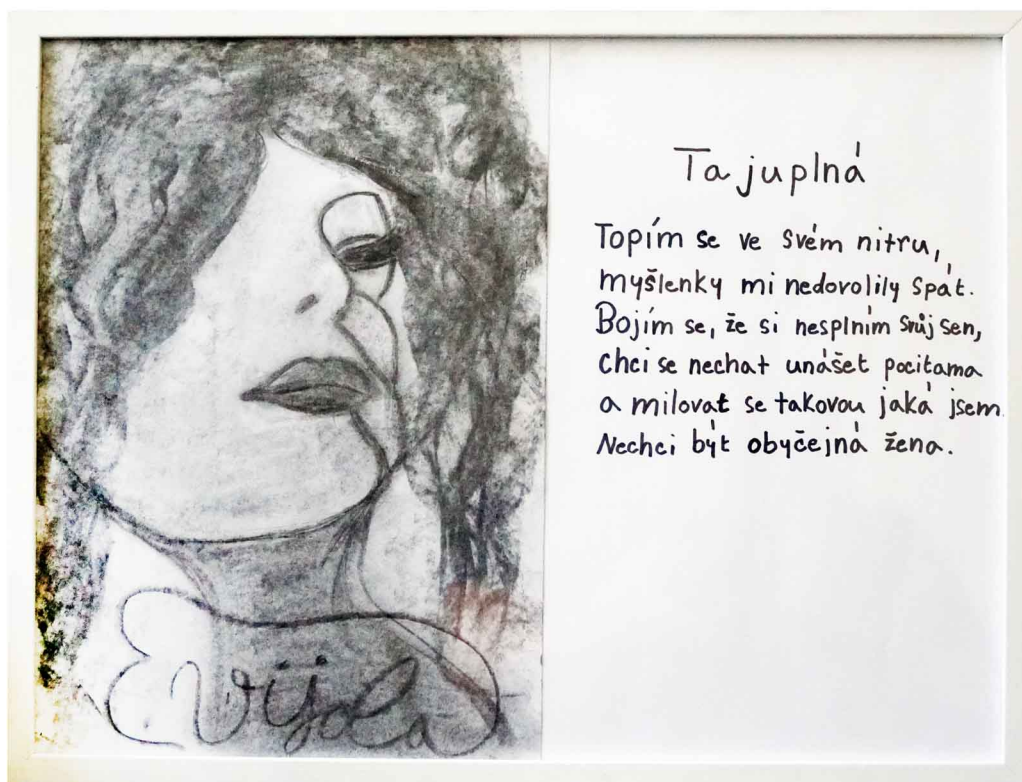 Tajuplná
Topím se ve svém nitru,
myšlenky mi nedovolily spát.
Bojím se, že si nesplním svůj sen,
chci se nechat unášet pocitama
a milovat se takovou jaká jsem.
Nechci být obyčejná žena.